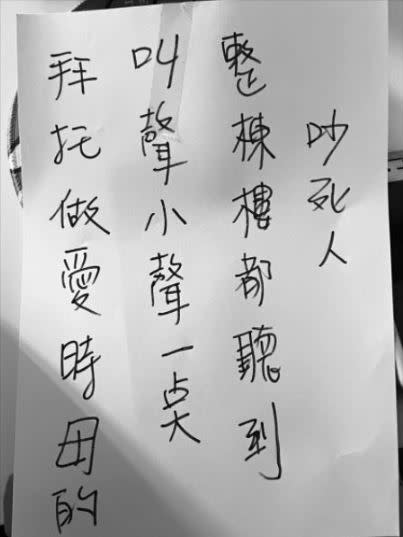 拜托做愛時母的
叫聲小聲一奌
整棟樓都聽到
吵死人